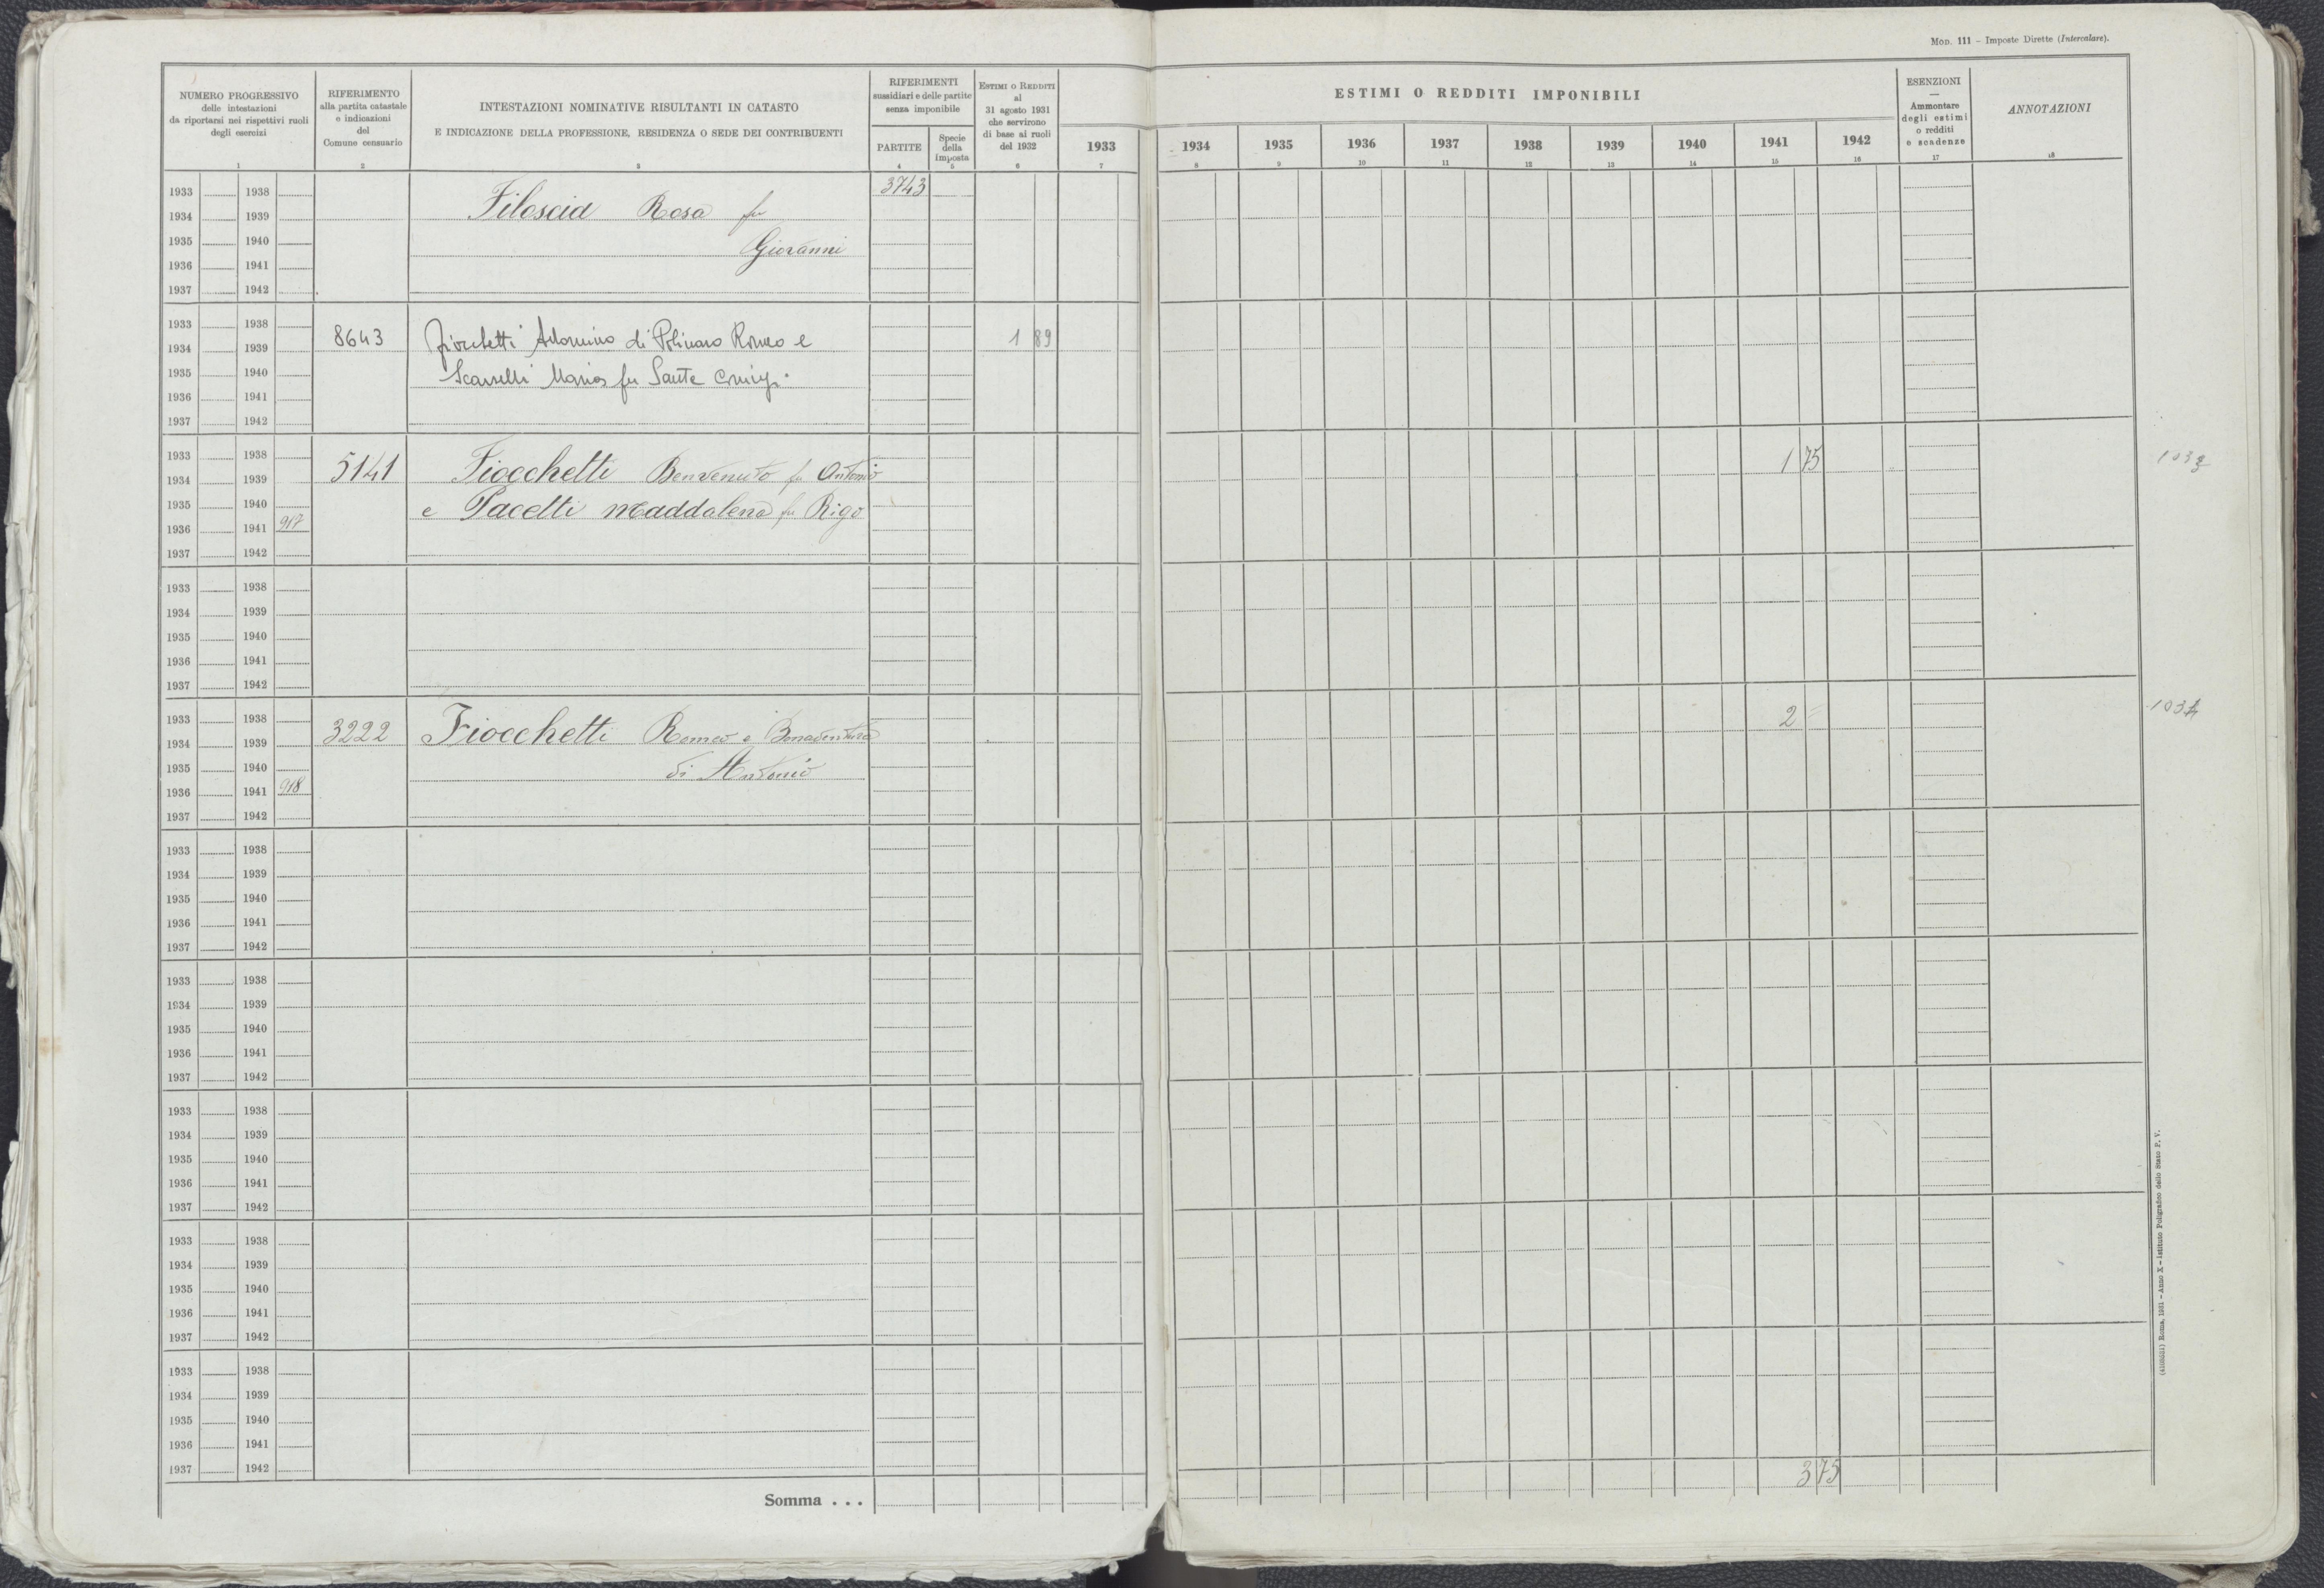 MOD. 111 – Imposte Dirette (Intercalare).
NUMERO PROGRESSIVO
delle intestazioni
da riportarsi nei rispettivi ruoli
degli esercizi
1
RIFERIMENTO
alla partita catastale
e indicazioni
del
Comune censuario
2
INTESTAZIONI NOMINATIVE RISULTANTI IN CATASTO
E INDICAZIONE DELLA PROFESSIONE, RESIDENZA O SEDE DEI CONTRIBUENTI
3
RIFERIMENTI
sussidiari e delle partite
senza imponibile
PARTITE
4
Specie
della
imposta
5
ESTIMI O REDDITI
al
31 agosto 1931
che servirono
di base ai ruoli
del 1932
6
ESTIMI O REDDITI IMPONIBILI
1933 1934 1935 1936 1937 1938 1939 1940 1941 1942
7 8 9 10 11 12 13 14 15 16
ESENZIONI
—
Ammontare
degli estimi
o redditi
e scadenze
17
ANNOTAZIONI
18
1933 1938 3743
1934 1939 Filoscia Rosa fu
1935 1940 Giovanni
1936 1941
1937 1942
1933 1938
1934 1939 8643 di Romeo e 1 89
1935 1940 fu Sante
1936 1941
1937 1942
1933 1938
1934 1939 5141 Fiocchetti Benvenuto fu Antonio 1 75 103
1935 1940 e Pacetti Maddalena fu Rigo
1936 1941 917
1937 1942
1933 1938
1934 1939
1935 1940
1936 1941
1937 1942
1933 1938
1934 1939 3222 Fiocchetti Romeo e Bonaventura 2 = 103
1935 1940 di Antonio
1936 1941 918
1937 1942
1933 1938
1934 1939
1935 1940
1936 1941
1937 1942
1933 1938
1934 1939
1935 1940
1936 1941
1937 1942
1933 1938
1934 1939
1935 1940
1936 1941
1937 1942
1933 1938
1934 1939
1935 1940
1936 1941
1937 1942
1933 1938
1934 1939
1935 1940
1936 1941
1937 1942
Somma . . . 3 75
Roma, 1931 – Anno X – Istituto Poligrafico dello Stato P. V.